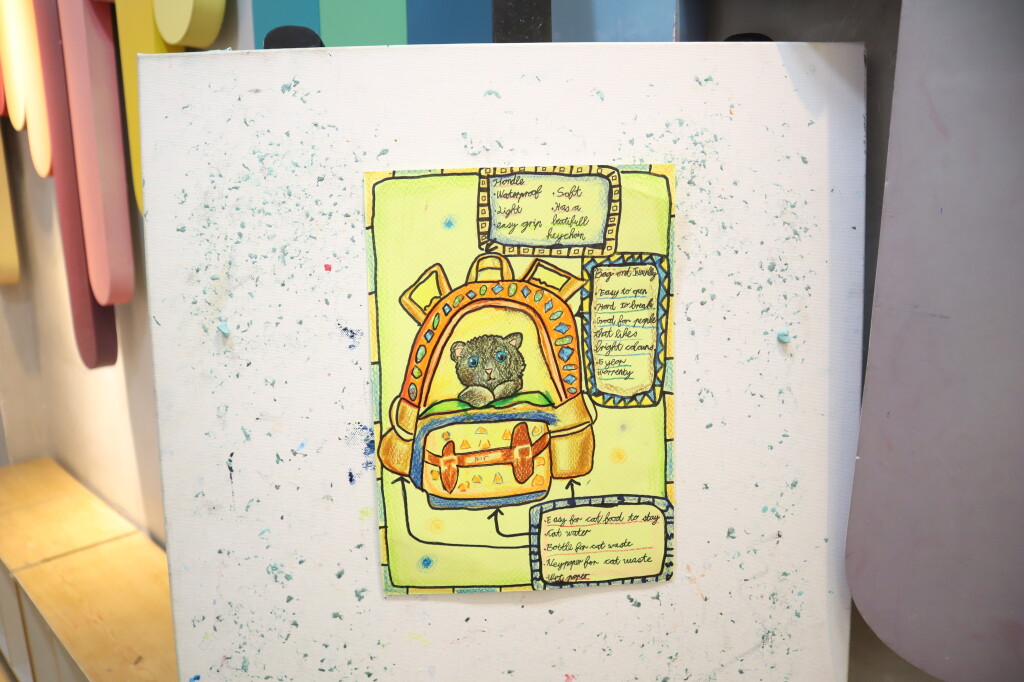 Handle
•Waterproof •Soft
•Light •Has a
•easy grip beatifull
keychain
Bag and Quality
•Easy to open
•Hard to break
•Good for people
that likes
bright colours
•5 year
Warrenty
•Easy for cat food to stay
•Cat water
•Bottle for cat waste
•Neypaper for cat waste
•Wet paper